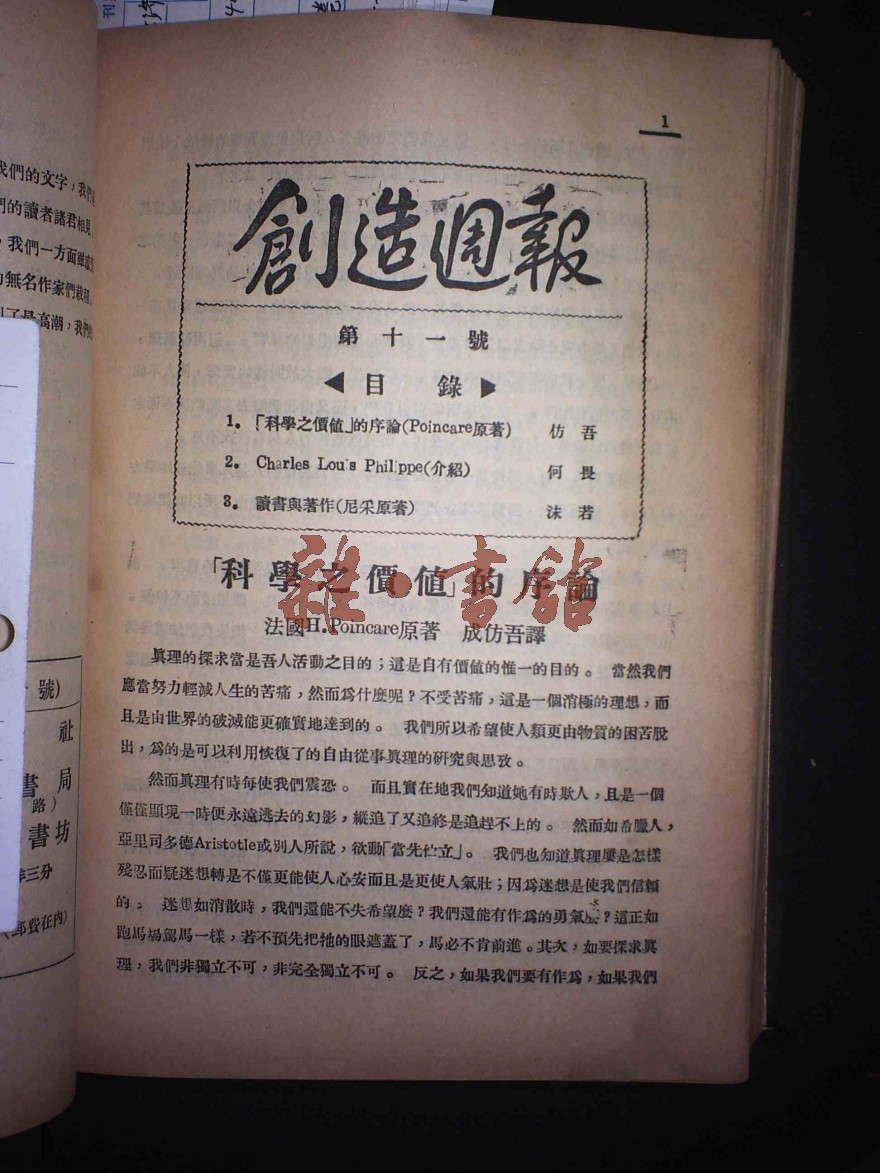 我們的文字，我們
們的讀者諸君相見，
，我們一方面雖
無名作家們栽
了最高潮，我們
號)
社
書局
路)
書坊
三分
(郵費在內)
1
創造週報
第十一號
◀目 錄▶
1。「科學之價値」的序論(Poincare原著) 仿 吾
2。 Charles Lou's Philippe(介紹) 何 畏
3。 讀書與著作(尼采原著) 沫 若
「科學之價値」的序論
法國H. Poincare原著 成仿吾譯
眞理的探求當是吾人活動之目的；這是自有價値的惟一的目的。 當然我們
應當努力輕減人生的苦痛，然而爲什麽呢？不受苦痛，這是一個消極的理想，而
且是由世界的破滅能更確實地達到的。 我們所以希望使人類更由物質的困苦脫
出，爲的是可以利用恢復了的自由從事眞理的硏究與思攷。
然而眞理有時每使我們震恐。 而且實在地我們知道她有時欺人，且是一個
僅僅顯現一時便永遠逃去的幻影，縱追了又追終是追趕不上的。 然而如希臘人，
亞里司多德Aristotle或別人所說，欲動「當先伫立」。 我們也知道眞理屢是怎樣
殘忍而疑迷想轉是不僅更能使人心安而且是更使人氣壯；因爲迷想是使我們信賴
的。 迷想如消散時，我們還能不失希望麽？我們還能有作爲的勇氣麽？這正如
跑馬場駕馬一樣，若不預先把牠的眼遮蓋了，馬必不肯前進。其次，如要探求眞
理，我們非獨立不可，非完全獨立不可。 反之，如果我們要有作爲，如果我們
雜·書館